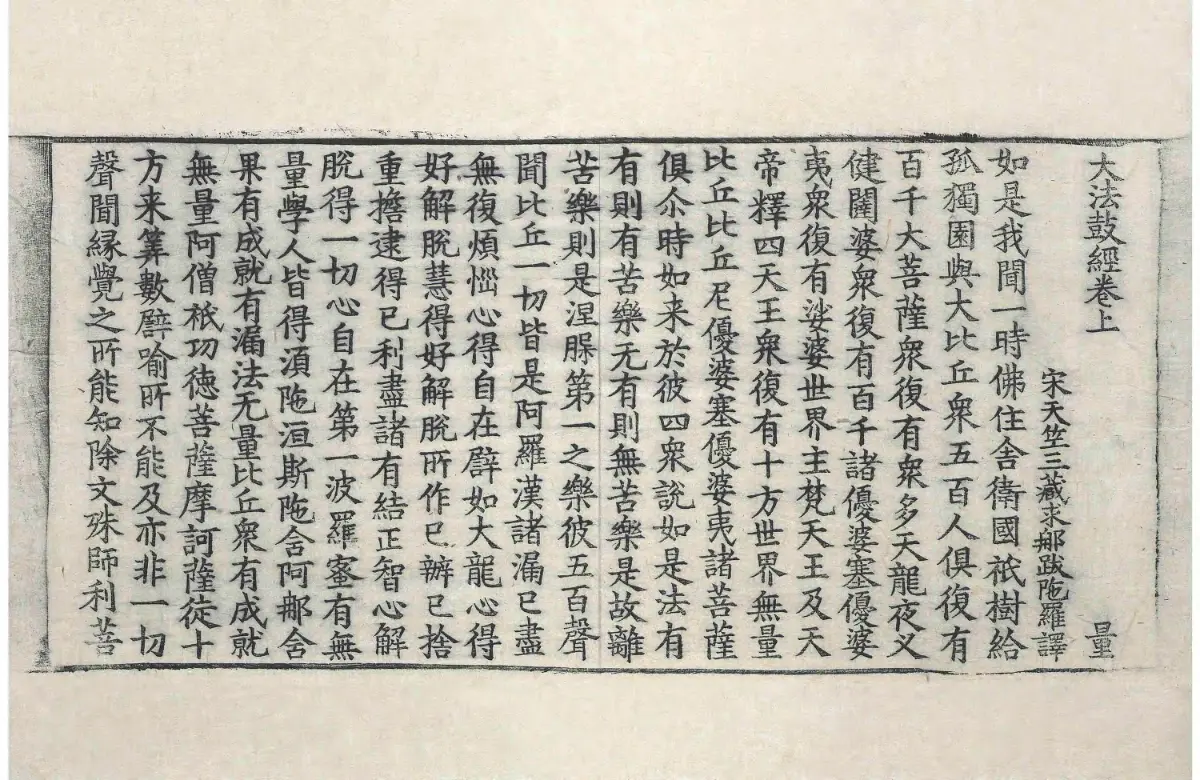 大法鼓經卷上 量
宋天竺三藏求郍跋陁羅譯
如是我聞一時佛住舍衛國祇樹給
孤獨園與大比丘衆五百人俱復有
百千大菩薩衆復有衆多天龍夜叉
健闥婆衆復有百千諸優婆塞優婆
夷衆復有娑婆世界主梵天王及天
帝釋四天王衆復有十方世界無量
比丘比丘尼優婆塞優婆夷諸菩薩
俱尒時如来於彼四衆說如是法有
有則有苦樂无有則無苦樂是故離
苦樂則是涅槃第一之樂彼五百聲
聞比丘一切皆是阿羅漢諸漏已盡
無復煩惱心得自在譬如大龍心得
好解脫慧得好解脫所作已辦已捨
重擔逮得已利盡諸有結正智心解
脫得一切心自在第一波羅蜜有無
量學人皆得湏陁洹斯陁含阿郍含
果有成就有漏法无量比丘衆有成就
無量阿僧祇功德菩薩摩訶薩從十
方来筭數譬喻所不能及亦非一切
聲聞緣覺之所能知除文殊師利菩